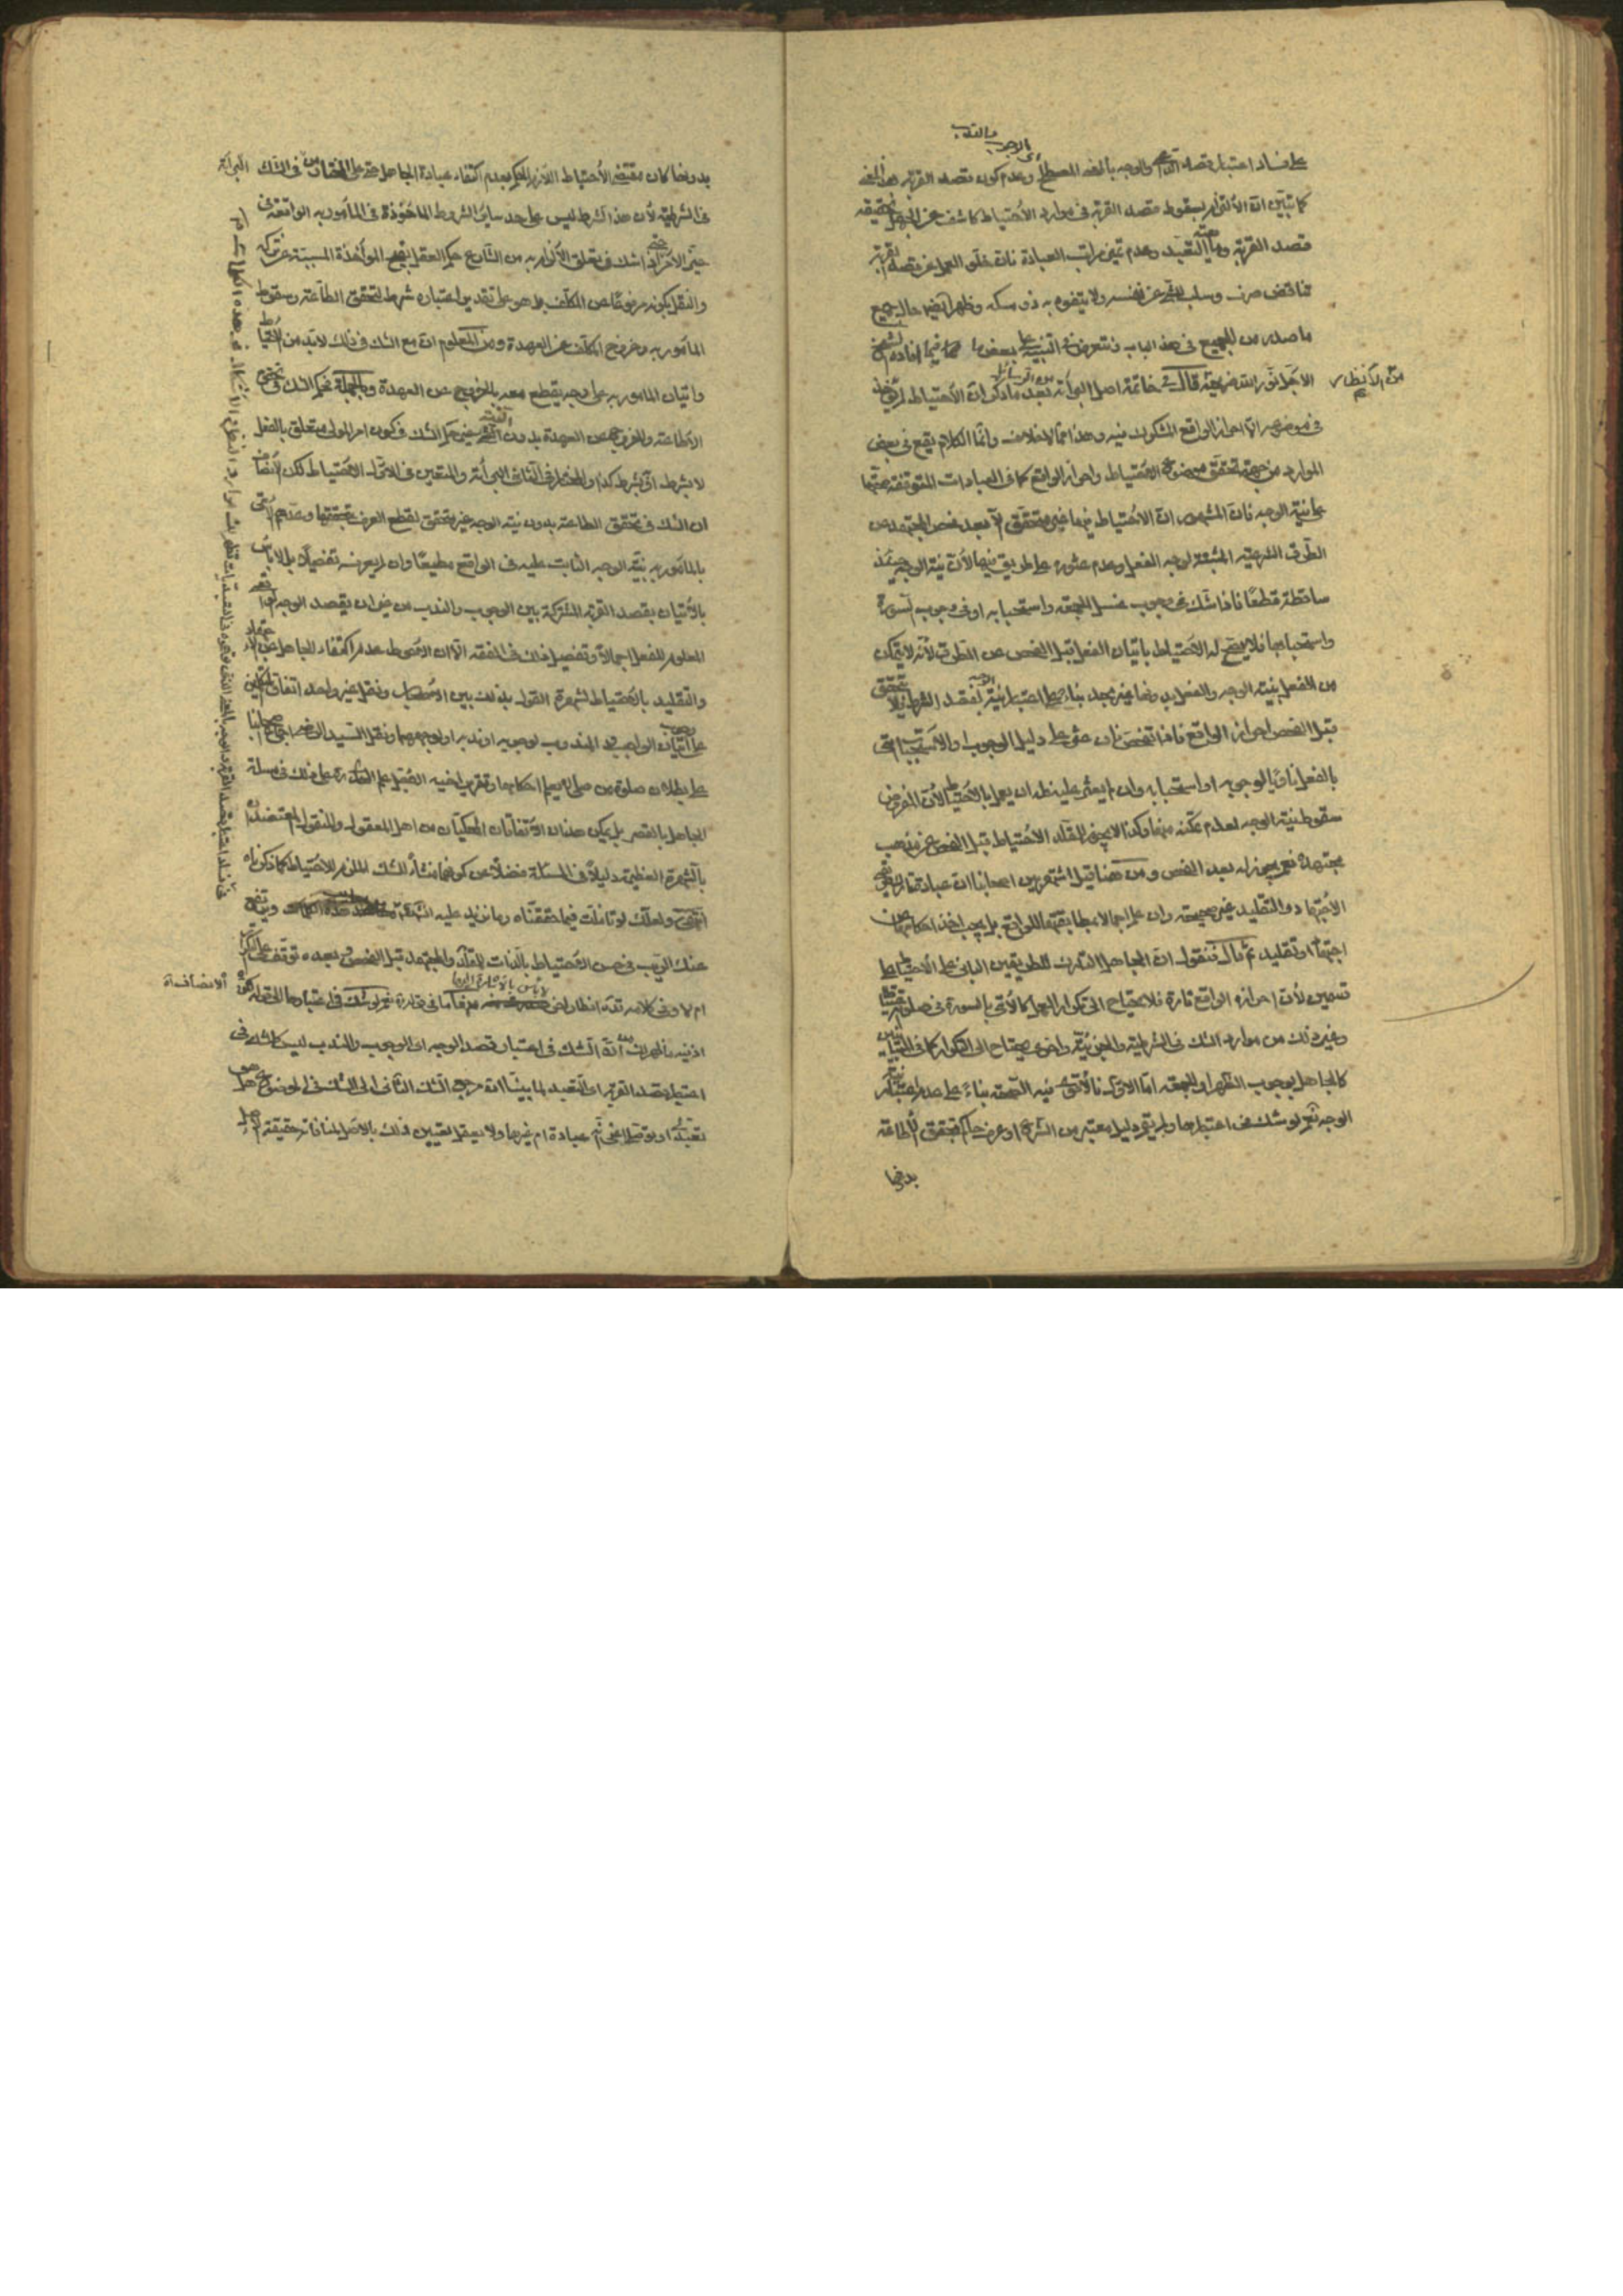 على فساد اعتبار قصد الوجه بالمعنى المصطلح وعدم كون قصد القربة بهذا المعنى
كما تبين ان الالتزام بسقوط قصد القربة في موارد الاحتياط كاشف عن الجهل بحقيقة
قصد القربة وماهية التعبد وعدم تميز مراتب العبادة فان خلو العمل عن قصد القربة
تناقض صرف وسلب للشيء عن نفسه ولا يتفوه به ذو مسكة وظهر ايضا حال جميع
ما صدر من الجميع في هذا الباب ونتعرض في التنبيه على بعضها فيما افاده الشيخ
الاجل انور الله ضريحه قال في خاتمة اصل البرائة بعد ما ذكر ان الاحتياط
في موضوعه الا احراز الواقع المشكوك فيه وهذا مما لا خلاف وانما الكلام يقع في بعض
الموارد من جهة تحقق موضوع الاحتياط واحراز الواقع كما في العبادات المتوقفة صحتها
على نية الوجه فان المشهور ان الاحتياط فيها غير متحقق الا بعد فحص المجتهد عن
الطرق الشرعية المثبتة لوجه الفعل وعدم عثوره على طريق فيها لان نية الوجه حينئذ
ساقطة قطعا فاذا شك في وجوب غسل الجمعة واستحبابه او في وجوب السورة
واستحبابها فلا يصح له الاحتياط باتيان الفعل قبل الفحص عن الطرق لانه لا يتمكن
من الفعل بنية الوجه والفعل بدونها غير مجد بناء على اعتبار نية الوجه لفقد الشرط فلا يتحقق
قبل الفحص احراز الواقع فاذا تفحص فان عثر على دليل الوجوب او الاستحباب اتى
بالفعل ناويا لوجوبه او استحبابه وان لم يعثر عليه فله ان يعمل بالاحتياط لان المفروض
سقوط نية الوجه لعدم تمكنه منها وكذا لا يجوز للمقلد الاحتياط قبل الفحص عن مذهب
مجتهده نعم يجوز له بعد الفحص ومن هنا قد اشتهر بين اصحابنا ان عبادة تارك طريقي
الاجتهاد والتقليد غير صحيحة وان علم اجمالا بمطابقتها للواقع بل يجب اخذ احكامها عن
اجتهاد او تقليد ثم قال فنقول ان الجاهل التارك للطريقين الباني على الاحتياط على
قسمين لان احرازه الواقع تارة لا يحتاج الى تكرار العمل كالآتي بالسورة في صلوته احتياطا
وغير ذلك من موارد الشك في الشرطية والجزئية واخرى يحتاج الى التكرار كما في المتباينين
كالجاهل بوجوب الظهر او الجمعة اما الاول فالاقوى فيه الصحة بناء على عدم اعتبار نية
الوجه نعم لو شك في اعتبارها ولم يقم دليل معتبر من الشرع او عرف حاكم بتحقق الاطاعة
بدونها
بدونها كان مقتضى الاحتياط اللازم الحكم بعدم اكتفاء عبادة الجاهل حتى على المختار من في الشك البرائة
في الشرطية لان هذا الشرط ليس على حد سائر الشروط الماخوذة في المأمور به الواقعة في
حيز الامر حتى اذا شك في تعلق الالزام به من الشارع حكم العقل بقبح المؤاخذة المسببة عن تركه
والنقل بكونه مرفوعا عن المكلف بل هو على تقدير اعتباره شرط لتحقق الطاعة وسقوط
المأمور به وخروج المكلف عن العهدة ومن المعلوم ان مع الشك في ذلك لا بد من الاحتياط
واتيان المأمور به على وجه يقطع معه بالخروج عن العهدة وبالجملة فحكم الشك في تحقق
الاطاعة والخروج عن العهدة بدون النية غير حكم الشك في كون امر المولى متعلق بالفعل
لا بشرط او بشرط كذا والمختار في الثاني البرائة والمتعين في الاول الاحتياط لكن الانصاف
ان الشك في تحقق الطاعة بدون نية الوجه غير متحقق لقطع العرف بتحققها وعدهم الآتي
بالمأمور به بنية الوجه الثابت عليه في الواقع مطيعا وان لم يعرفه تفصيلا بل لا بأس
بالاتيان بقصد القربة المشتركة بين الوجوب والندب من غير ان يقصد الوجه الواقعي
المعلوم للفعل اجمالا وتفصيل ذلك في الفقه الا ان الاحوط عدم اكتفاء الجاهل عن الاجتهاد
والتقليد بالاحتياط لشهرة القول بذلك بين الاصحاب ونقل غير واحد اتفاق المتكلمين
على وجوب اتيان الواجب والمندوب لوجوبه او ندبه او لوجههما ونقل السيد الرضي اجماع اصحابنا
على بطلان صلوة من صلى لا يعلم احكامها وتقرير اخيه الاجل علم الهدى له على ذلك في مسئلة
الجاهل بالقصر بل يمكن هذان الاتفاقان المحكيان من اهل المعقول والمنقول المعتضدان
بالشهرة العظيمة دليلا في المسئلة فضلا عن كونهما منشأ للشك الملزم للاحتياط كما ذكرناه
انتهى ولعلك لو تأملت فيما حققناه وما نزيد عليه
عنك الريب في حسن الاحتياط بالذات للمقلد والمجتهد قبل الفحص وبعده توقف على التكرار
ام لا وفي كلامه انظار لا بأس بالاشارة اليها نعم لو شك في اعتبارها الى قوله لكن الانصاف اه
اذ فيه ان الشك في اعتبار قصد الوجه اي الوجوب والندب ليس كالشك في
اعتبار قصد القربة اي التعبد لما بينا ان مرجع الشك الثاني الى الشك في الموضوع هل هو
تعبدي او توصلي اعني عبادة ام غيرها ولا يعقل تعيين ذلك بالاصل لمنافاته حقيقة